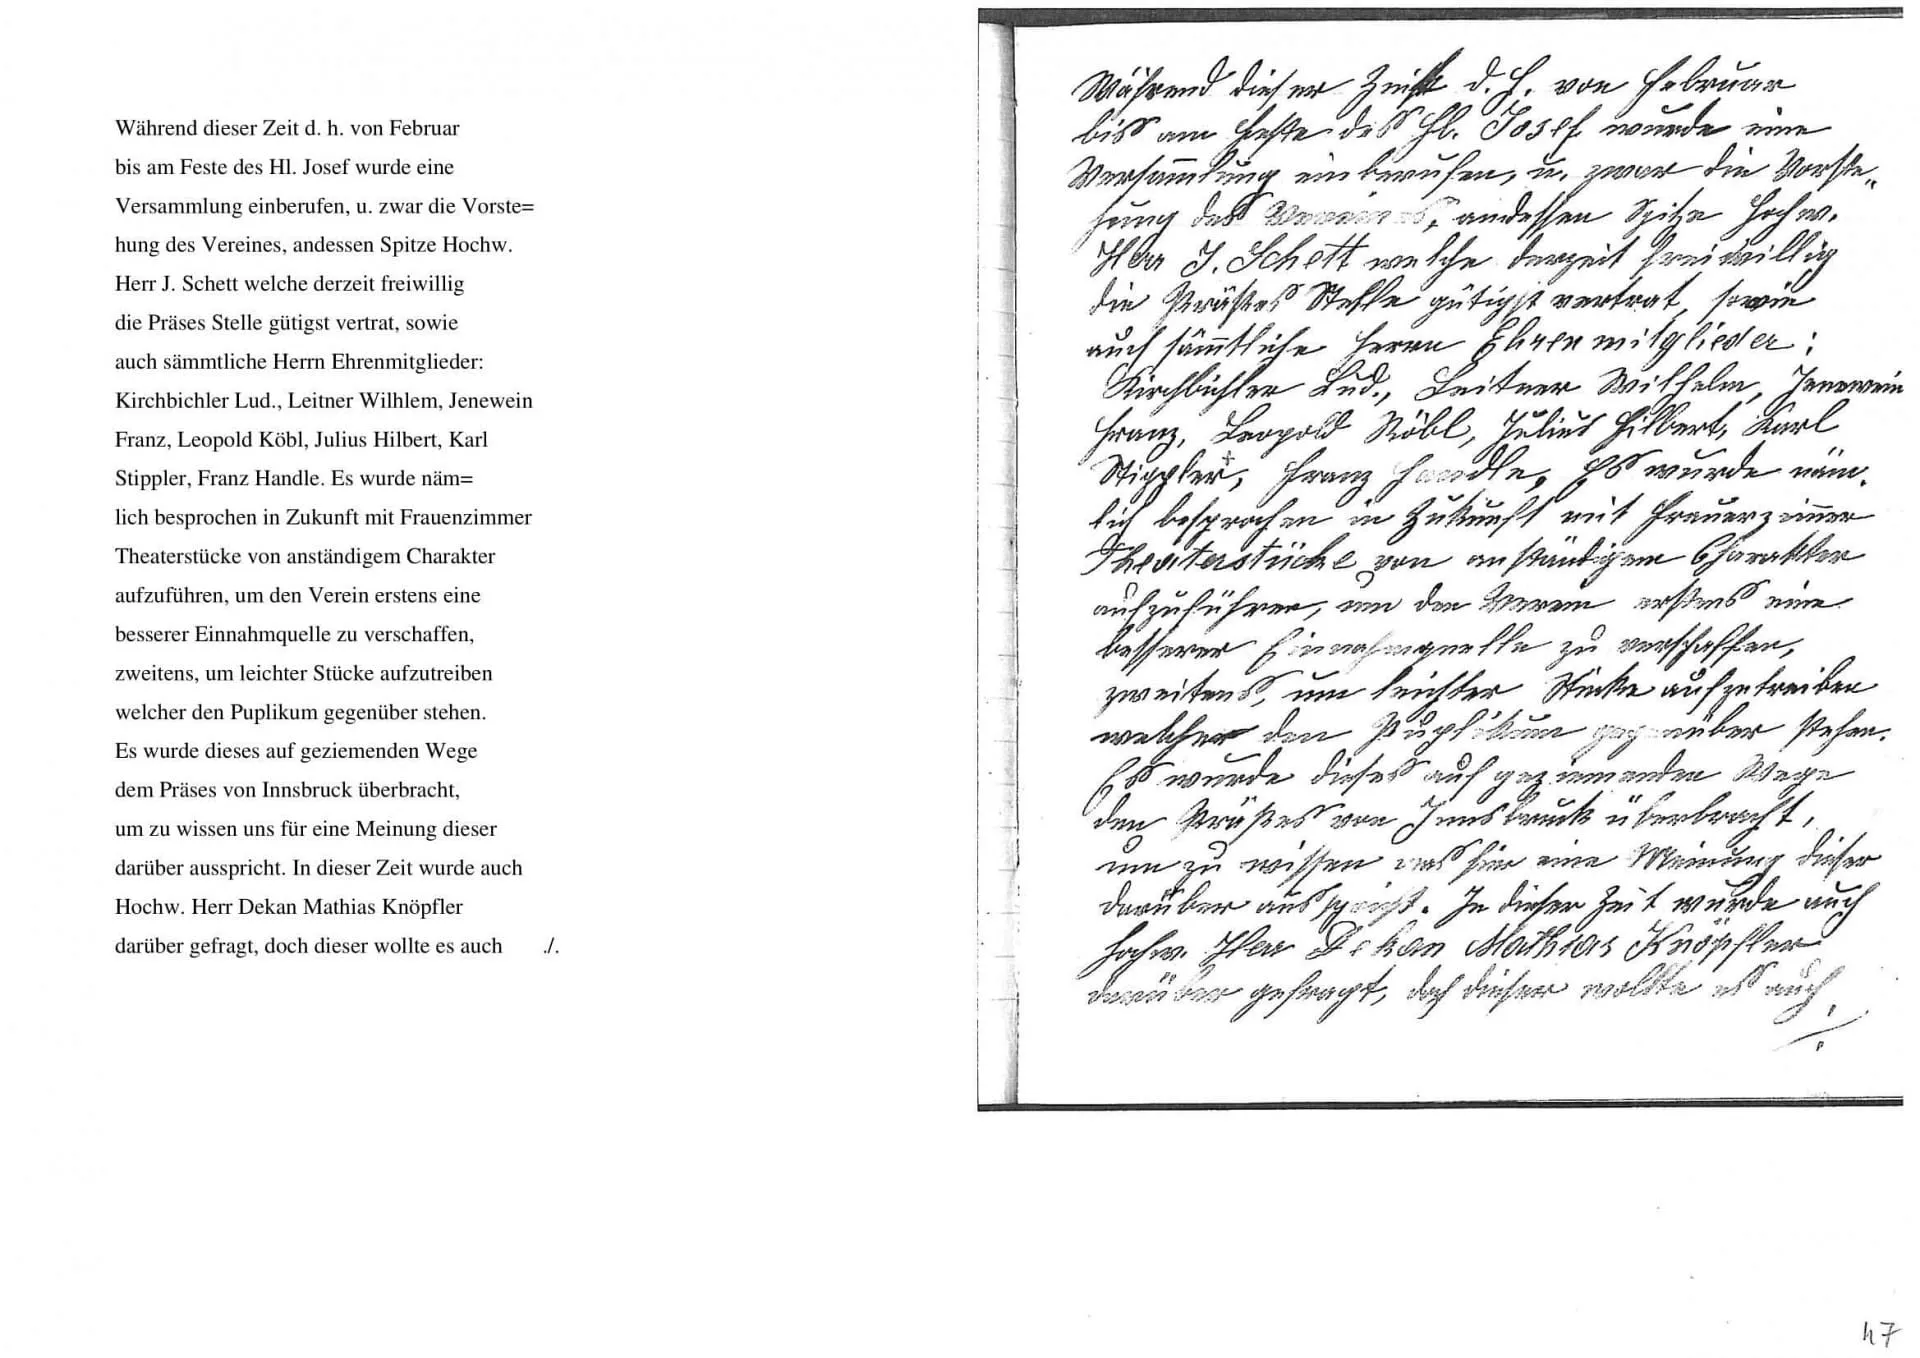 Während dieser Zeit d. h. von Februar
bis am Feste des Hl. Josef wurde eine
Versammlung einberufen, u. zwar die Vorste=
hung des Vereines, andessen Spitze Hochw.
Herr J. Schett welche derzeit freiwillig
die Präses Stelle gütigst vertrat, sowie
auch sämmtliche Herrn Ehrenmitglieder:
Kirchbichler Lud., Leitner Wilhlem, Jenewein
Franz, Leopold Köbl, Julius Hilbert, Karl
Stippler, Franz Handle. Es wurde näm=
lich besprochen in Zukunft mit Frauenzimmer
Theaterstücke von anständigem Charakter
aufzuführen, um den Verein erstens eine
besserer Einnahmquelle zu verschaffen,
zweitens, um leichter Stücke aufzutreiben
welcher den Puplikum gegenüber stehen.
Es wurde dieses auf geziemenden Wege
dem Präses von Innsbruck überbracht,
um zu wissen uns für eine Meinung dieser
darüber ausspricht. In dieser Zeit wurde auch
Hochw. Herr Dekan Mathias Knöpfler
darüber gefragt, doch dieser wollte es auch ./.
Während dieser Zeit d. h. von Februar
biss am Feste des Hl. Josef wurde eine
Versammlung einberufen, u. zwar die Vorste„
hung des Vereines, andessen Spitze Hochw.
Herr J. Schett welche derzeit freiwillig
die Präses Stelle gütigst vertrat, sowie
auch sämtliche Herrn Ehrenmitglieder:
Kirchbichler Lud., Leitner Wilhelm, Jenewein
Franz, Leopold Köbl, Julius Hilbert, Karl
Stippler+, Franz Handle. Es wurde näm.
lich besprochen in Zukunft mit Frauenzimmer
Theaterstücke von anständigem Charakter
aufzuführen, um den Verein erstens eine
besserer Einnahmquelle zu verschaffen,
zweitens, um leichter Stücke aufzutreiben
welcher den Puplikum gegenüber stehen.
Es wurde dieses auf geziemenden Wege
den Präses von Innsbruck überbracht,
um zu wissen was für eine Meinung dieser
darüber ausspricht. In dieser Zeit wurde auch
Hochw. Herr Dekan Mathias Knöpfler
darüber gefragt, doch dieser wollte es auch
./.
47